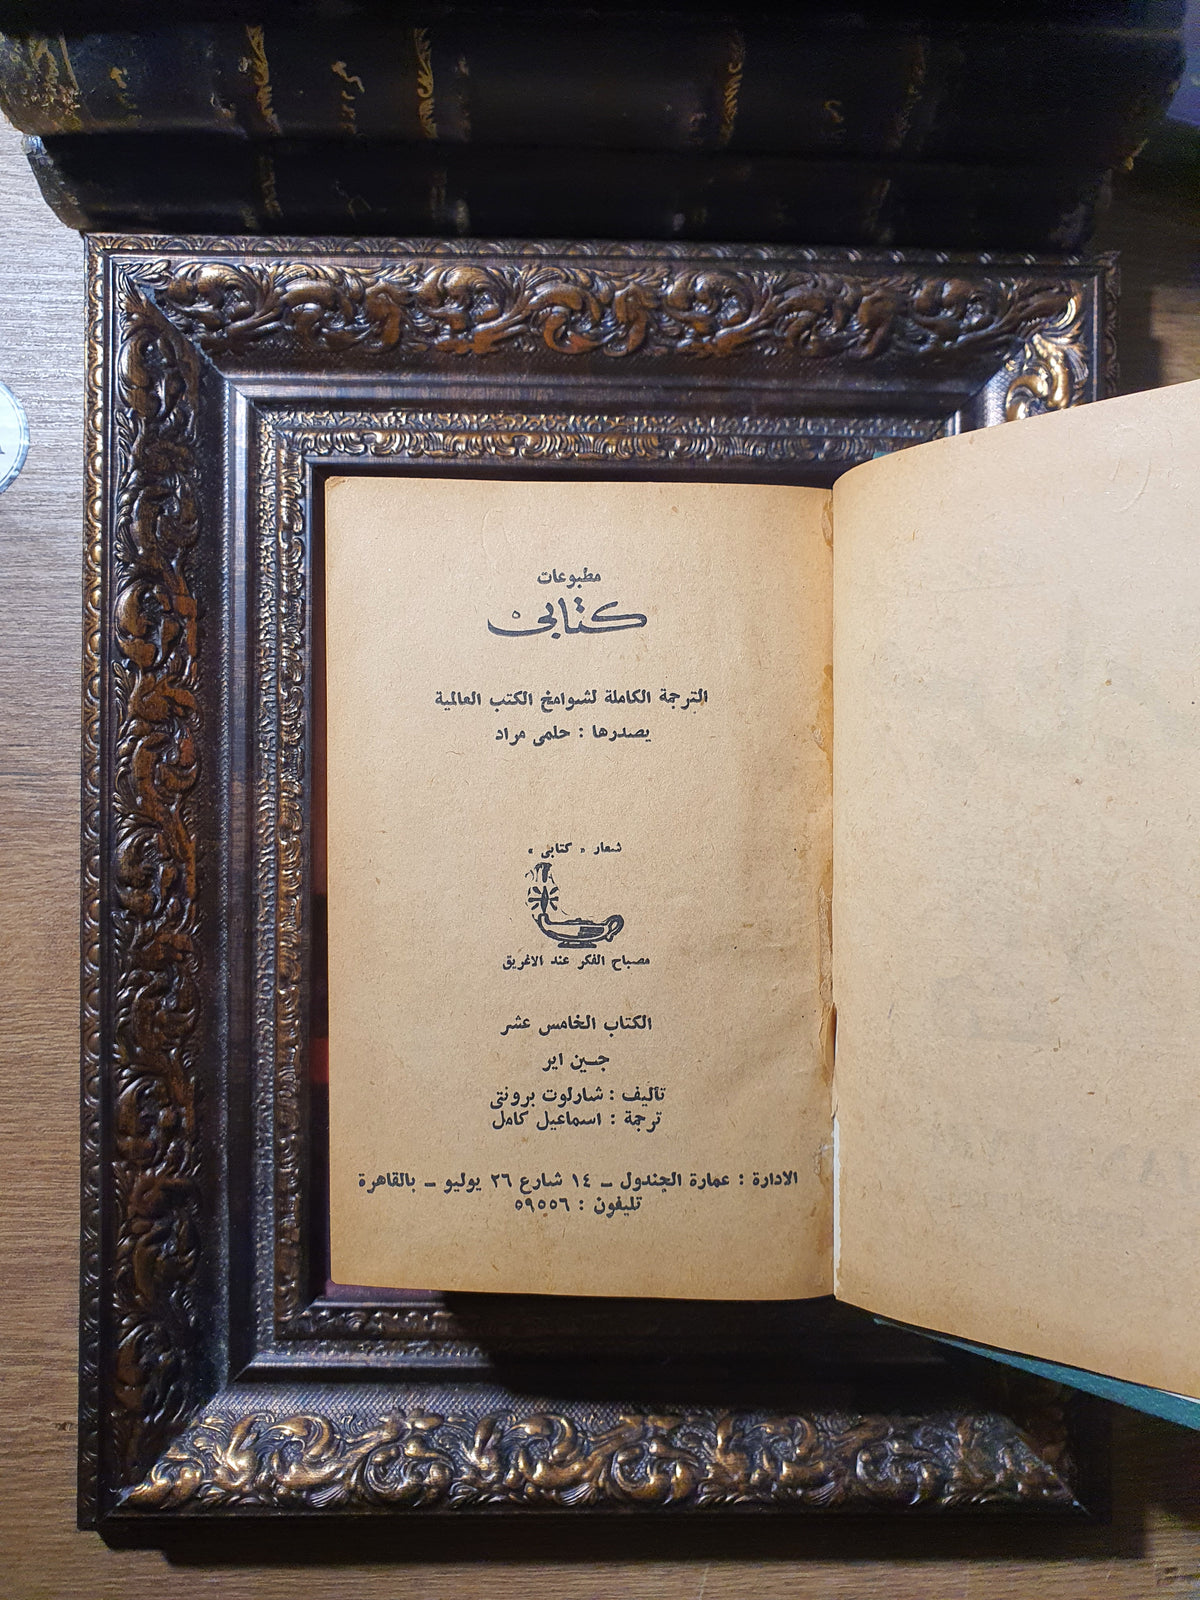 مطبوعات
كتابى
الترجمة الكاملة لشوامخ الكتب العالمية
يصدرها : حلمى مراد
شعار « كتابى »
مصباح الفكر عند الاغريق
الكتاب الخامس عشر
جين اير
تأليف : شارلوت برونتى
ترجمة : اسماعيل كامل
الادارة : عمارة الجندول ــ ١٤ شارع ٢٦ يوليو ــ بالقاهرة
تليفون : ٥٩٥٥٦